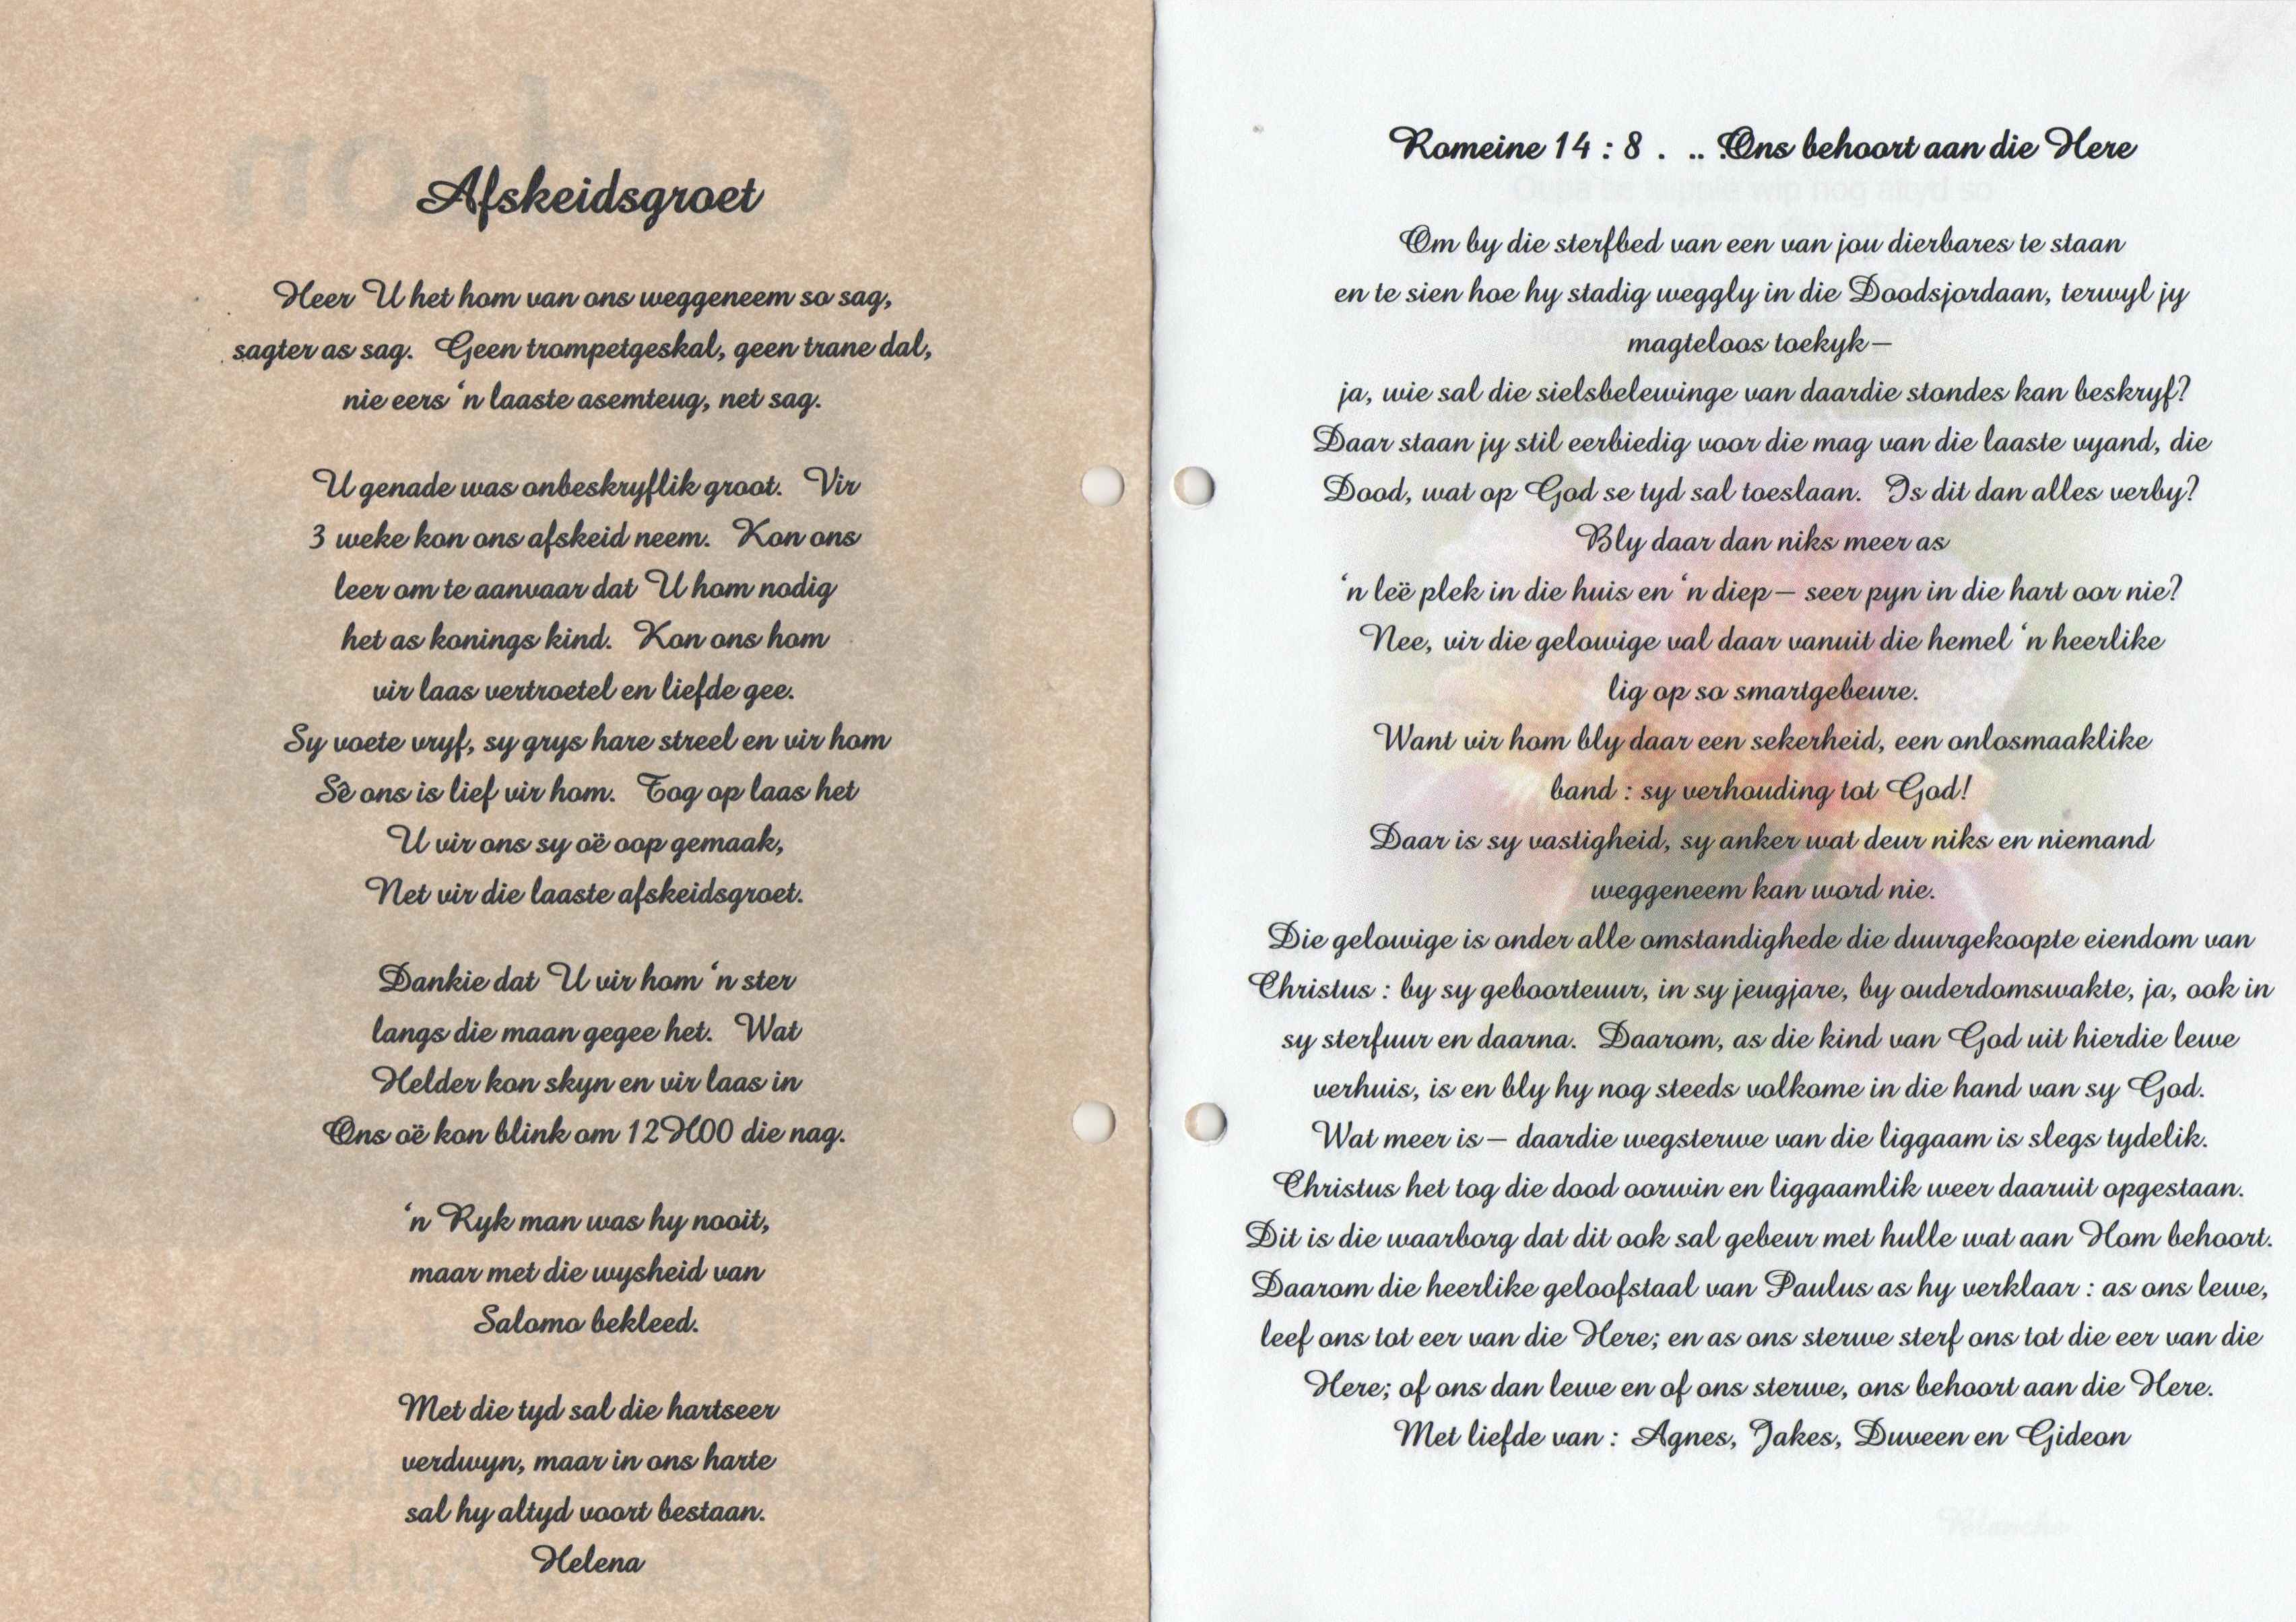 Afskeidsgroet
Heer U het hom van ons weggeneem so sag,
sagter as sag. Geen trompetgeskal, geen trane dal,
nie eers ‘n laaste asemteug, net sag.
U genade was onbeskryflik groot. Vir
3 weke kon ons afskeid neem. Kon ons
leer om te aanvaar dat U hom nodig
het as konings kind. Kon ons hom
vir laas vertroetel en liefde gee.
Sy voete vryf, sy grys hare streel en vir hom
Sê ons is lief vir hom. Tog op laas het
U vir ons sy oë oop gemaak,
Net vir die laaste afskeidsgroet.
Dankie dat U vir hom ‘n ster
langs die maan gegee het. Wat
Helder kon skyn en vir laas in
Ons oë kon blink om 12H00 die nag.
‘n Ryk man was hy nooit,
maar met die wysheid van
Salomo bekleed.
Met die tyd sal die hartseer
verdwyn, maar in ons harte
sal hy altyd voort bestaan.
Helena
Romeine 14 : 8 . .. .Ons behoort aan die Here
Om by die sterfbed van een van jou dierbares te staan
en te sien hoe hy stadig weggly in die Doodsjordaan, terwyl jy
magteloos toekyk—
ja, wie sal die sielsbelewinge van daardie stondes kan beskryf?
Daar staan jy stil eerbiedig voor die mag van die laaste vyand, die
Dood, wat op God se tyd sal toeslaan. Is dit dan alles verby?
Bly daar dan niks meer as
‘n leë plek in die huis en ‘n diep— seer pyn in die hart oor nie?
Nee, vir die gelowige val daar vanuit die hemel ‘n heerlike
lig op so smartgebeure.
Want vir hom bly daar een sekerheid, een onlosmaaklike
band : sy verhouding tot God!
Daar is sy vastigheid, sy anker wat deur niks en niemand
weggeneem kan word nie.
Die gelowige is onder alle omstandighede die duurgekoopte eiendom van
Christus : by sy geboorteuur, in sy jeugjare, by ouderdomswakte, ja, ook in
sy sterfuur en daarna. Daarom, as die kind van God uit hierdie lewe
verhuis, is en bly hy nog steeds volkome in die hand van sy God.
Wat meer is— daardie wegsterwe van die liggaam is slegs tydelik.
Christus het tog die dood oorwin en liggaamlik weer daaruit opgestaan.
Dit is die waarborg dat dit ook sal gebeur met hulle wat aan Hom behoort.
Daarom die heerlike geloofstaal van Paulus as hy verklaar : as ons lewe,
leef ons tot eer van die Here; en as ons sterwe sterf ons tot die eer van die
Here; of ons dan lewe en of ons sterwe, ons behoort aan die Here.
Met liefde van : Agnes, Jakes, Duveen en Gideon